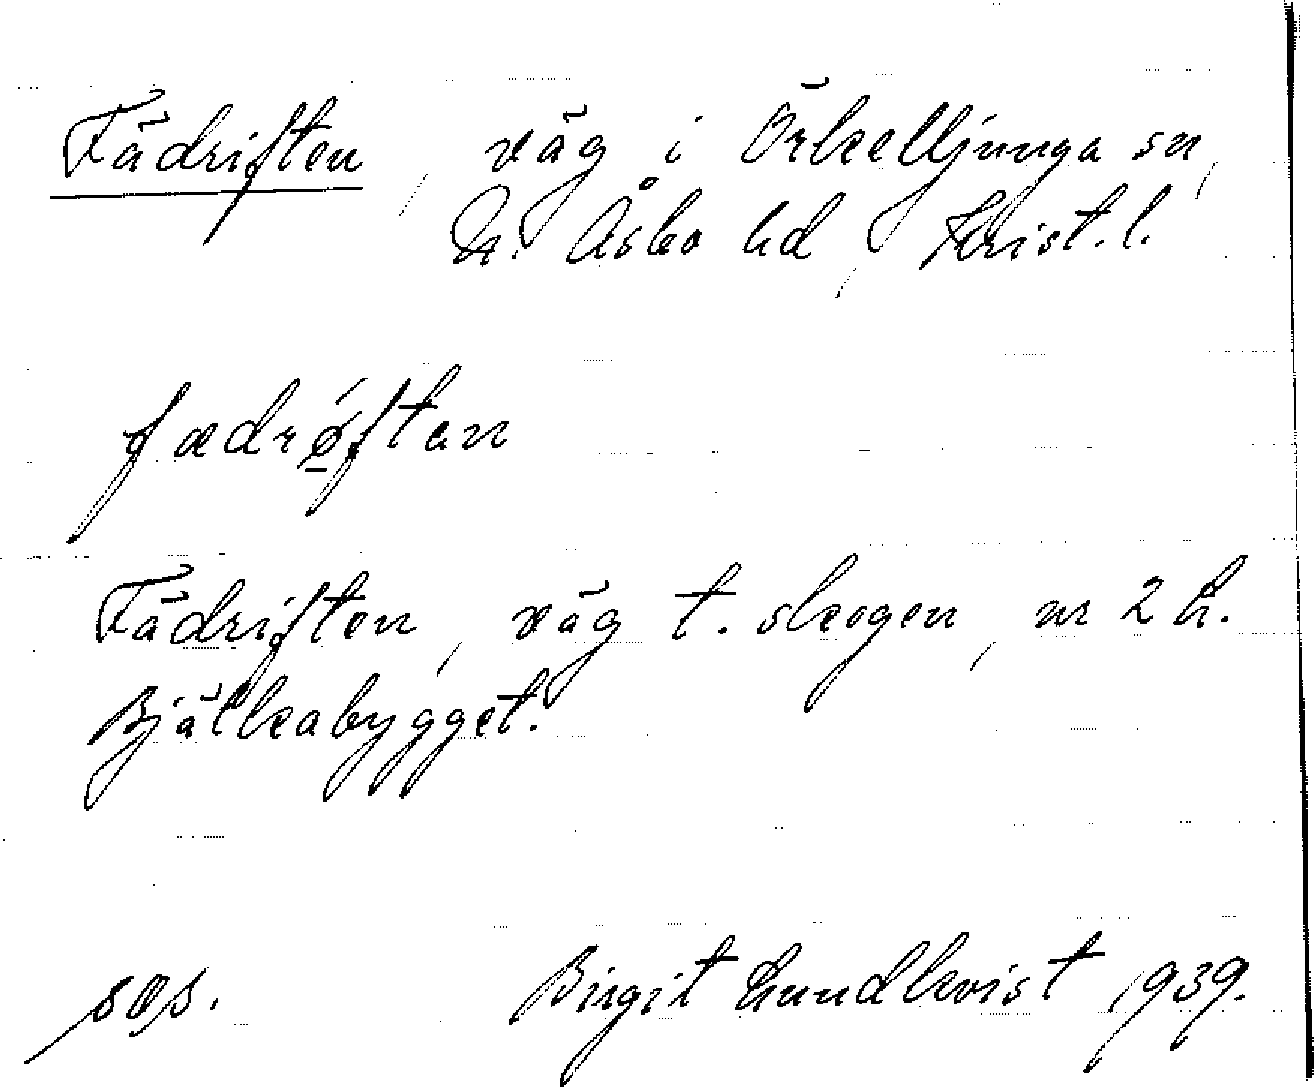 Fädriften, väg i Örkelljunga sn,
N. Åsbo hd, Krist. l.
fædrǿ̱ftan
Fädriften, väg t. skogen, nr 2 h.
Bjälkabygget.
sep.
Birgit Lundkvist 1939.